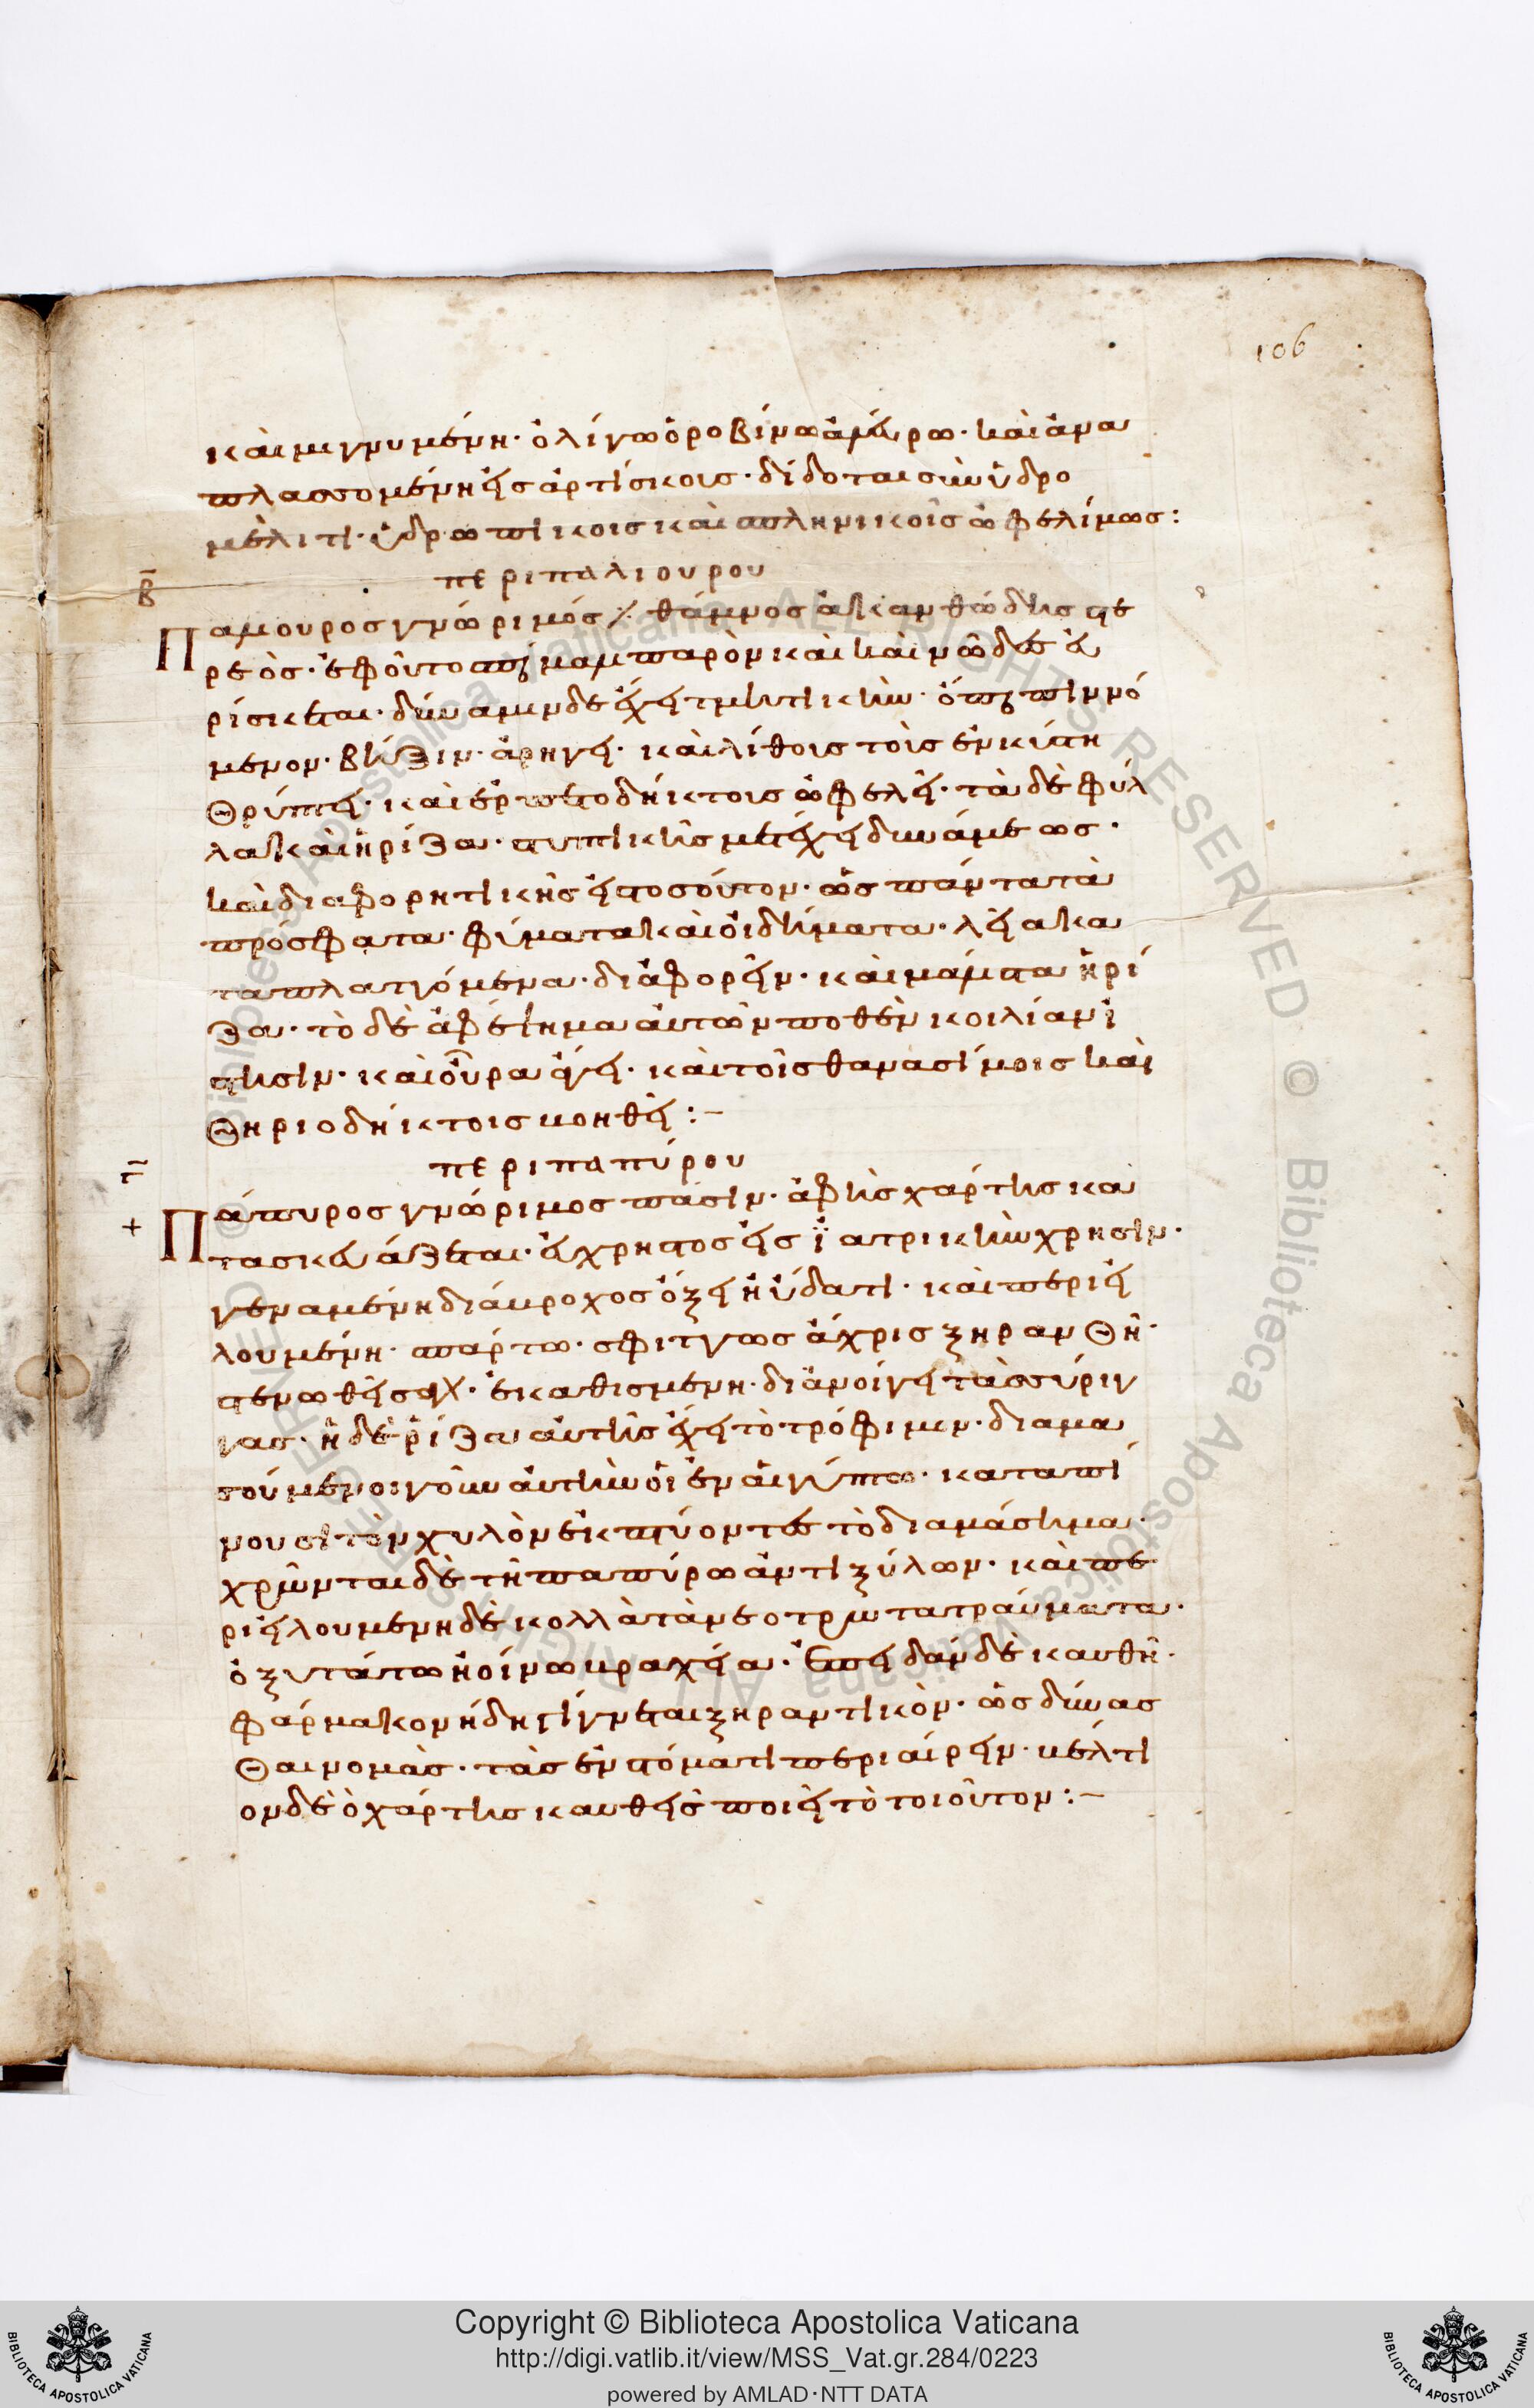 106
καὶ μιγνυμένη· ὀλίγω ὀροβίνω ἀλεύρω· καὶ ἀνα
πλασσομένη εἰς ἀρτίσκους· δίδοται σὺν ὑδρο
μέλιτι· ὑδρωπικοῖς καὶ σπληνικοῖς ὠφελίμως:
β
περι παλιουρου
Παλίουρος γνώριμός ἐστι θάμνος ἀκανθώδης στε
ρεός·
ρίσκεται· δύναμιν δὲ ἔχει τμητικήν· ὅπερ πινό
μενον· βῆξιν ἀρήγει· καὶ λίθοις τοῖς ἐν κύστη
θρύπτει· καὶ ἑρπετοδήκτοις ὠφελεῖ· τὰ δὲ φύλ
λα καὶ ἡ ρίζα· στυπτικῆς μετέχει δυνάμεως·
καὶ διαφορητικῆς εἰς τοσοῦτον· ὡς πάντα τὰ
πρόσφατα· φύματα καὶ οἰδήματα· λεῖα κα
ταπλαττόμενα· διαφορεῖν· καὶ μάλιστα ἡ ρί
ζα· τὸ δὲ ἀφέψημα αὐτῶν ποθὲν κοιλίαν ἵ
στησιν· καὶ οὖρα ἄγει· καὶ τοῖς θανασίμοις καὶ
θηριοδήκτοις βοηθεῖ:–
γ
περι παπύρου
Πάπυρος γνώριμος πᾶσιν· ἀφ' ἧς χάρτης κα
τασκευάζεται· εὔχρηστος εἰς ἰατρικὴν χρῆσιν·
γεναμένη διάβροχος ὄξει ἢ ὕδατι· καὶ περιει
λουμένη σπάρτω· σφιγγῶς ἄχρις ξηρανθῆ·
στενωθεῖσα γὰρ· ἐγκαθισμένη· διανοίγει τὰς σύριγ
γας· ἡ δὲ ῥίζα αὐτῆς ἔχει τὸ τρόφιμον· διαμα
σούμενοι γοῦν αὐτὴν οἱ ἐν αἰγύπτω· καταπί
νουσι τὸν χυλὸν ἐκπτύοντες τὸ διαμάσημα·
χρῶνται δὲ τῆ παπύρω ἀντὶ ξύλων· καὶ πε
ριειλουμένη δὲ κολλᾶ τὰ νεότρωτα τραύματα·
ὀξυτάτω ἢ οἴνω βραχεῖα· Ἐπειδὰν δὲ καυθῆ·
φάρμακον ἤδη γίγνεται ξηραντικὸν· ὡς δύνασ
θαι νομὰς· τὰς ἐν στόματι περιαίρειν· βέλτι
ον δὲ ὁ χάρτης καυθεὶς ποιεῖ τὸ τοιοῦτον:–
Copyright © Biblioteca Apostolica Vaticana
http://digi.vatlib.it/view/MSS_Vat.gr.284/0223
powered by AMLAD·NTT DATA
BIBLIOTECA APOSTOLICA VATICANA
BIBLIOTECA APOSTOLICA VATICANA